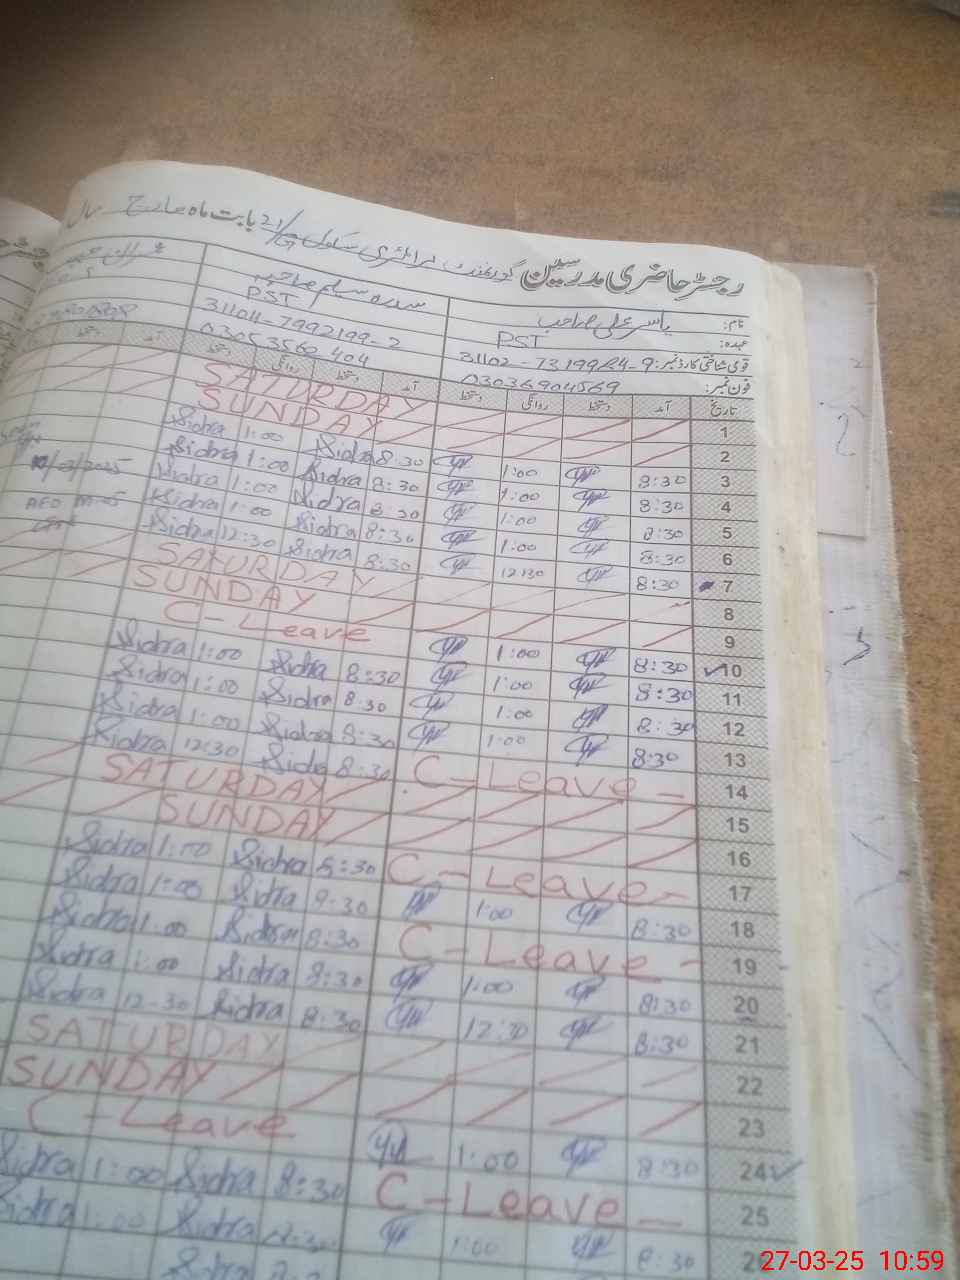 رجسٹر حاضری مدرسین گورنمنٹ پرائمری سکول بابت ماہ مارچ سال
نام: یاسر علی صاحب سدرہ سلیم صاحبہ
عہدہ: PST PST
قومی شناختی کارڈ نمبر: 31102-7319984-9 31104-7992199-2
فون نمبر: 03036904569 03053560404
تاریخ آمد دستخط روانگی دستخط آمد دستخط روانگی دستخط
1 SATURDAY
2 SUNDAY
3 8:30 1:00 8:30 Sidra 1:00 Sidra
4 8:30 1:00 8:30 Sidra 1:00 Sidra
5 8:30 1:00 8:30 Sidra 1:00 Sidra
6 8:30 1:00 8:30 Sidra 1:00 Sidra
7 8:30 12:30 8:30 Sidra 12:30 Sidra
8 SATURDAY
9 SUNDAY
10 8:30 1:00 C-Leave
11 8:30 1:00 8:30 Sidra 1:00 Sidra
12 8:30 1:00 8:30 Sidra 1:00 Sidra
13 8:30 1:00 8:30 Sidra 1:00 Sidra
14 C-Leave 8:30 Sidra 12:30 Sidra
15 SATURDAY
16 SUNDAY
17 C-Leave 8:30 Sidra 1:00 Sidra
18 8:30 1:00 8:30 Sidra 1:00 Sidra
19 C-Leave 8:30 Sidra 1:00 Sidra
20 8:30 1:00 8:30 Sidra 1:00 Sidra
21 8:30 12:30 8:30 Sidra 12-30 Sidra
22 SATURDAY
23 SUNDAY
24 8:30 1:00 C-Leave
25 C-Leave 8:30 Sidra 1:00 Sidra
8:30 1:00 8:30 Sidra 1:00 Sidra
27-03-25 10:59